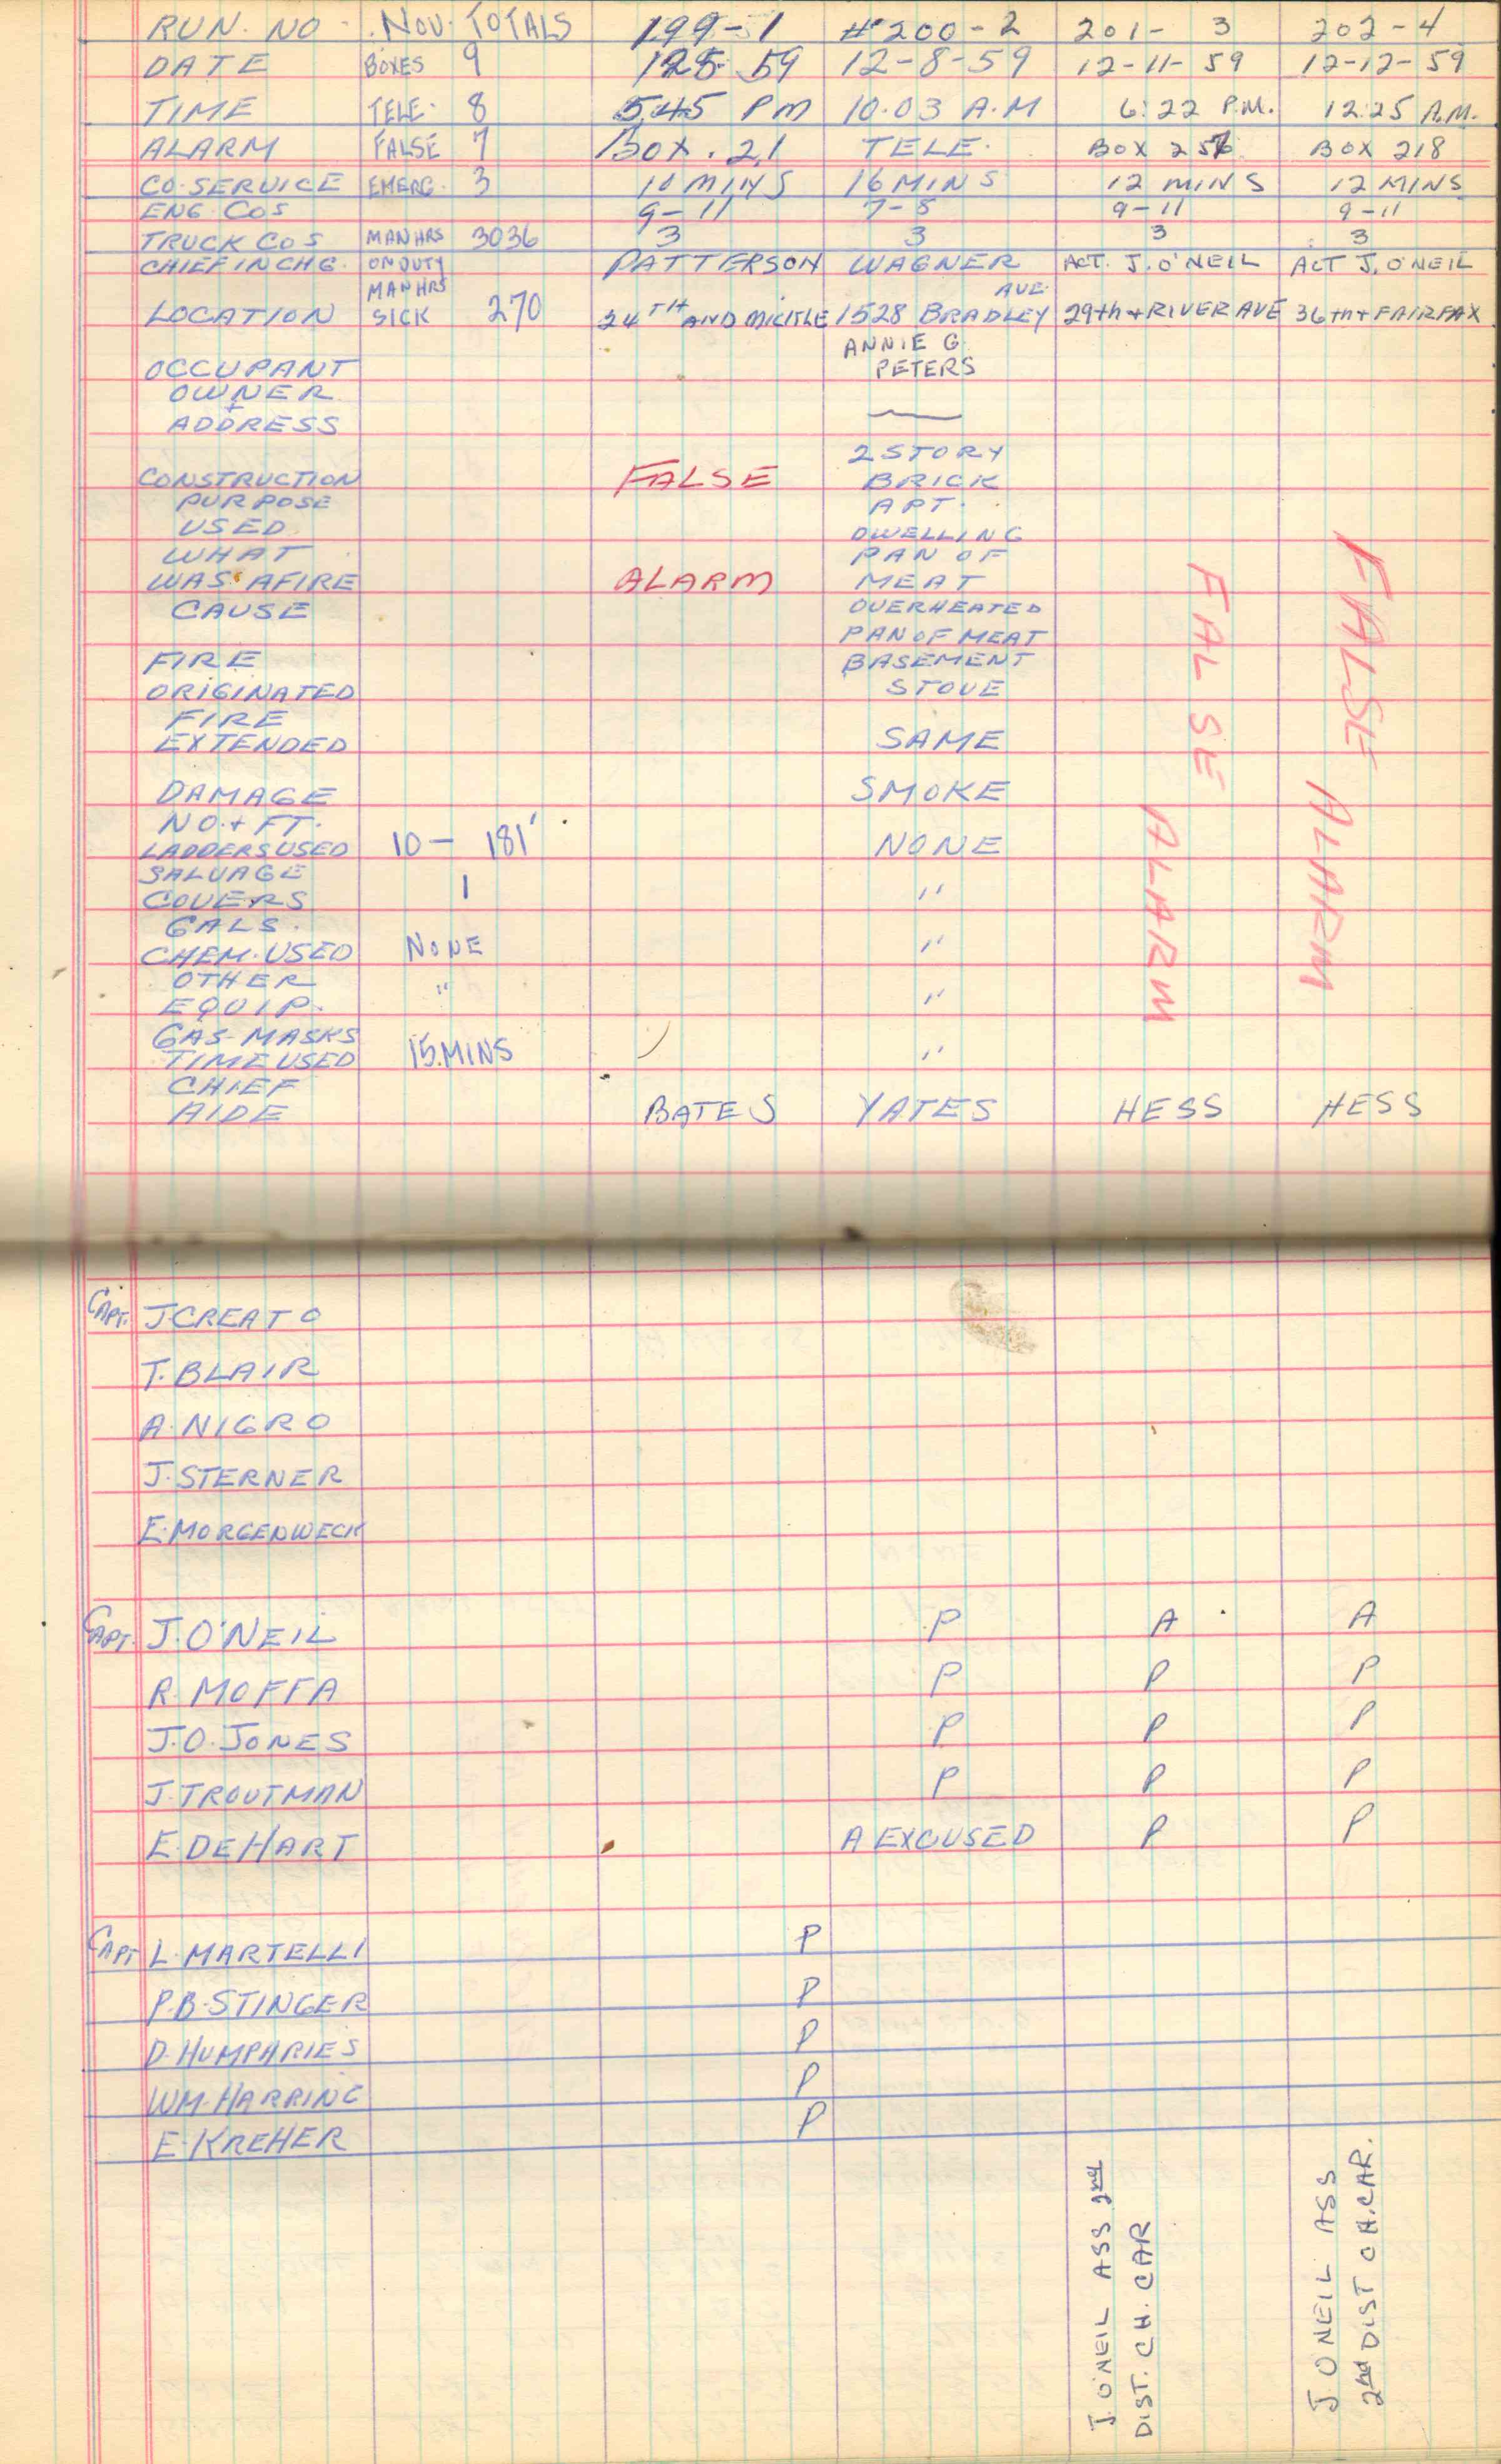 RUN. NO. NOV. TOTALS 199-1 #200-2 201- 3 202-4
DATE BOXES 9 59 12-8-59 12-11-59 12-12-59
TIME TELE. 8 5.45 PM 10.03 A.M 6:22 P.M. 12:25 A.M.
ALARM FALSE 7 BOX. 21 TELE. BOX BOX 218
CO. SERVICE EMERG. 3 10 MINS 16 MINS 12 MINS 12 MINS
ENG. COS 9-11 7-8 9-11 9-11
TRUCK COS MAN HRS 3036 3 3 3 3
CHIEF IN CHG. ON DUTY PATTERSON WAGNER ACT. J. O'NEIL ACT J. O'NEIL
MAN HRS AVE.
LOCATION SICK 270 24TH AND 1528 BRADLEY 29th + RIVER AVE 36th + FAIRFAX
ANNIE G
OCCUPANT PETERS
OWNER
+
ADDRESS —
2 STORY
CONSTRUCTION FALSE BRICK
PURPOSE APT.
USED DWELLING
WHAT PAN OF
WAS AFIRE ALARM MEAT
CAUSE OVERHEATED
PAN OF MEAT
FIRE BASEMENT
ORIGINATED STOVE
FIRE
EXTENDED SAME
DAMAGE SMOKE
NO. + FT.
LADDERS USED 10 - 181' NONE
SALVAGE
COVERS 1 "
GALS.
CHEM. USED NONE "
OTHER
EQUIP. " "
GAS-MASKS
TIME USED 15. MINS "
CHIEF
AIDE BATES YATES HESS HESS
FALSE ALARM
FALSE ALARM
CAPT. J. CREATO
T. BLAIR
A. NIGRO
J. STERNER
E. MORGENWECK
CAPT. J. O'NEIL P A A
R. MOFFA P P P
J. O. JONES P P P
J. TROUTMAN P P P
E. DEHART A EXCUSED P P
CAPT L. MARTELLI P
P. B. STINGER P
D. HUMPHRIES P
WM. HARRING P
E. KREHER P
J. O'NEIL ASS 2nd
DIST. CH. CAR
J. O NEIL ASS
2nd DIST CH. CAR.